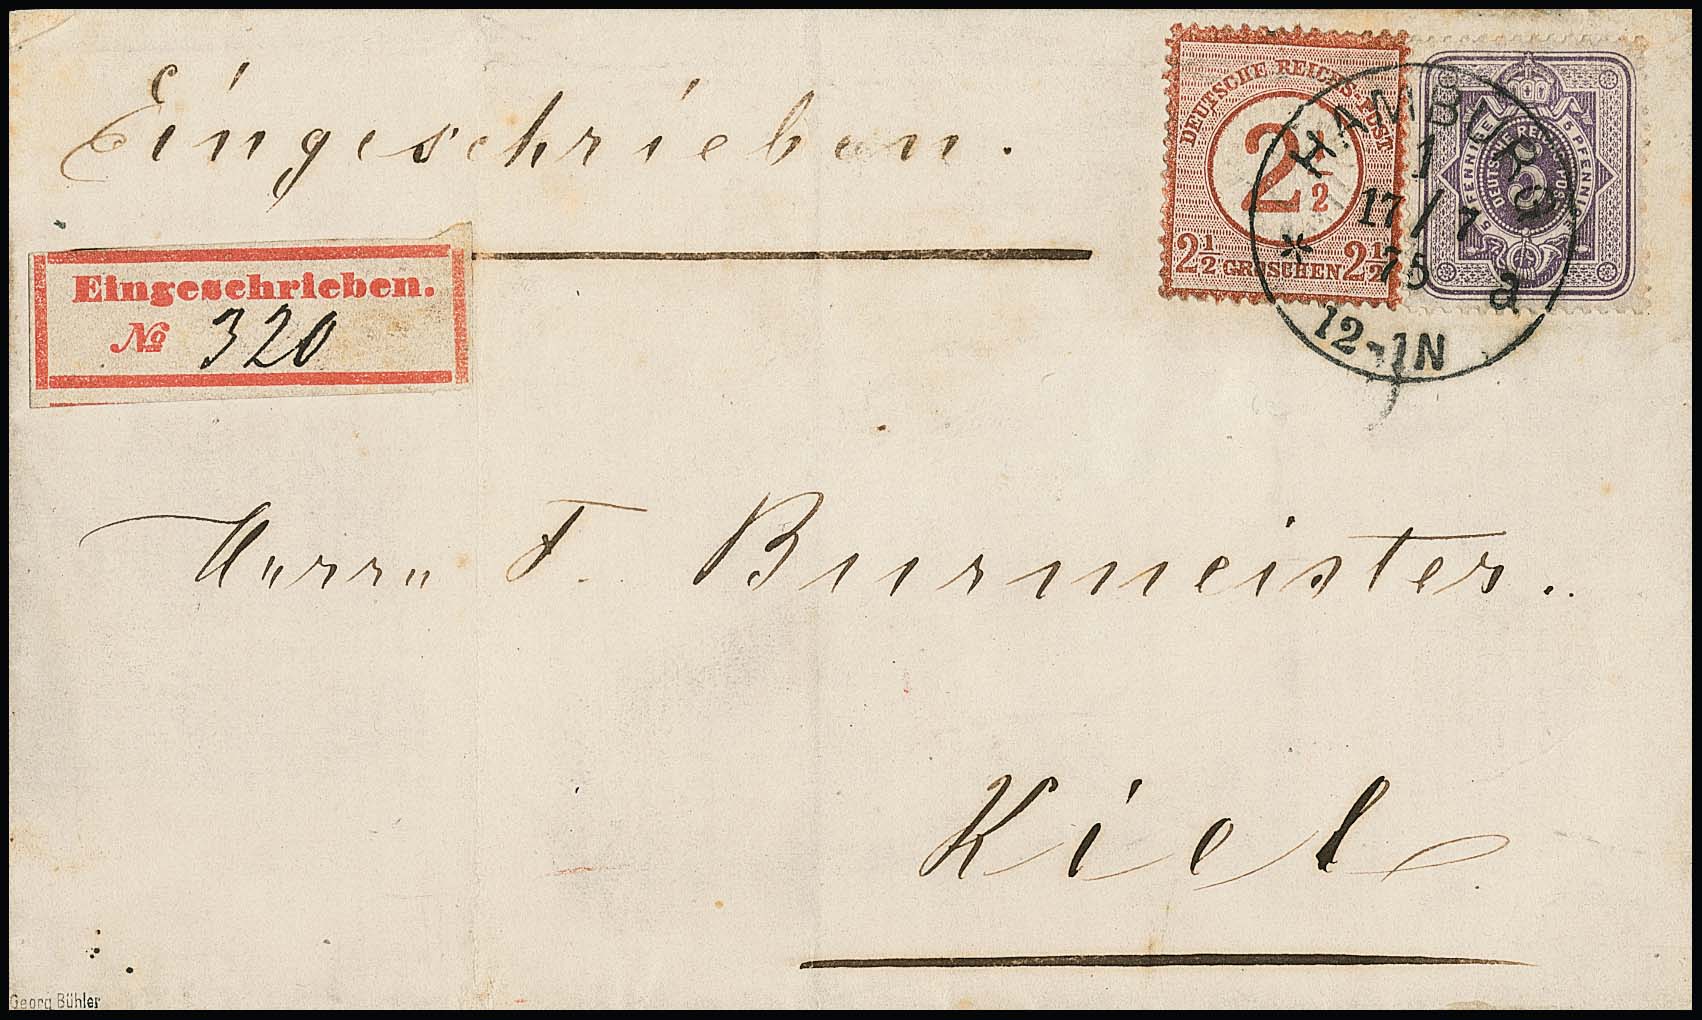 Eingeschrieben.
DEUTSCHE REICHS-POST
2 1/2
2 1/2 GROSCHEN 2 1/2
5 PFENNIGE 5 PFENNIGE
DEUTSCHE REICHS-POST
5
HAMBURG
1
17/7
75
* a
12-1N
Eingeschrieben.
No 320
Herrn F. Burmeister.
Kiel
Georg Bühler